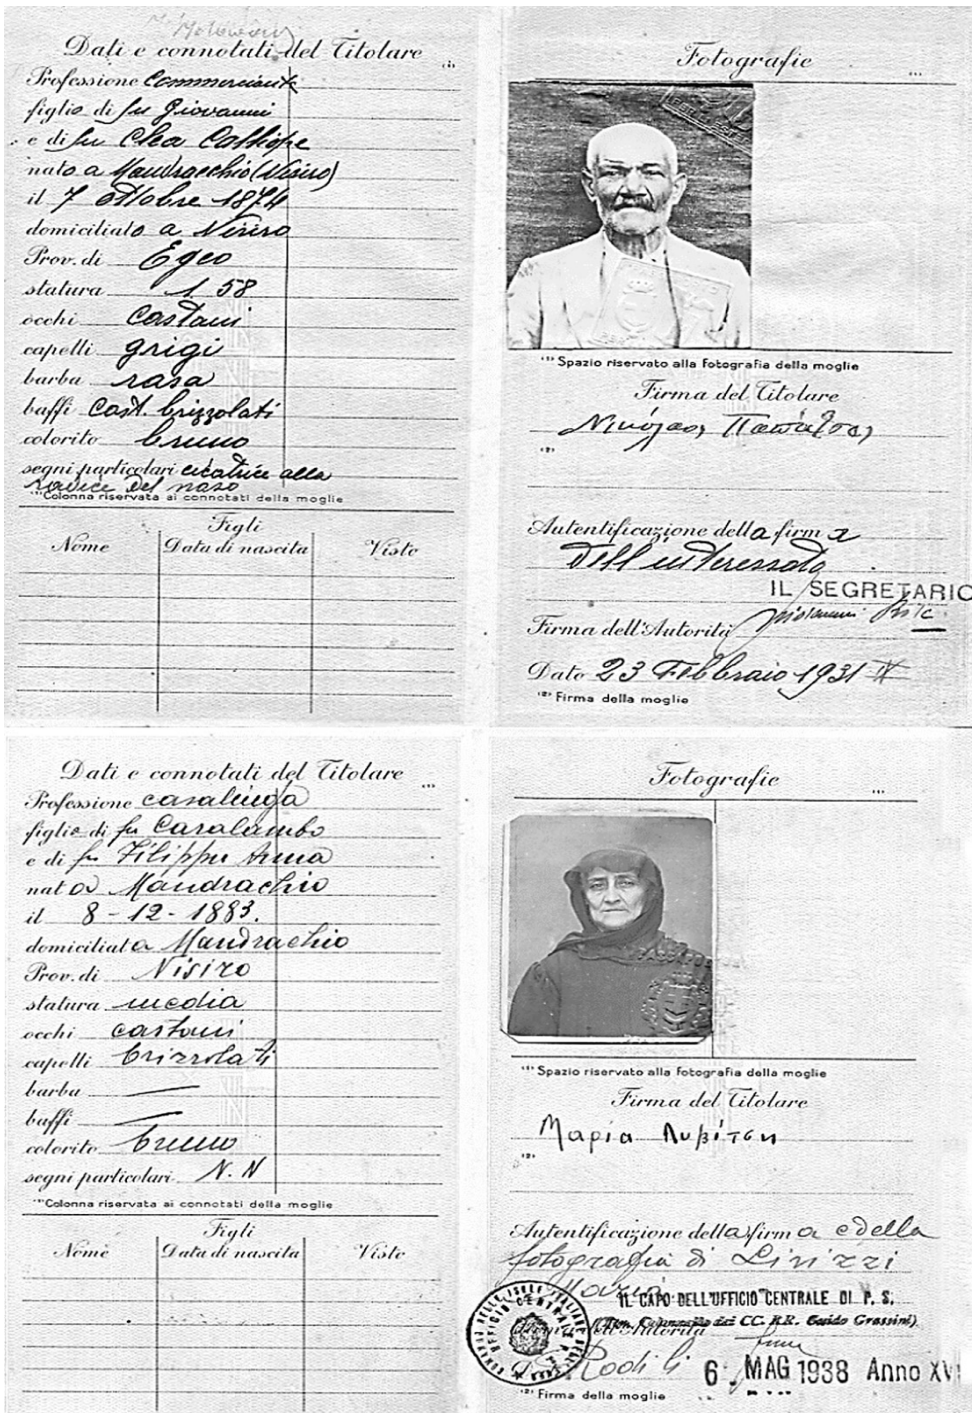 Dati e connotati del Titolare
Professione Commerciante
figlio di fu Giovanni
e di fu Clea Calliope
nato a Mandracchio (Nisiro)
il 7 Ottobre 1874
domiciliato a Nisiro
Prov. di Egeo
statura 1 58
occhi castani
capelli grigi
barba rasa
baffi Cast. brizzolati
colorito bruno
segni particolari cicatrice alla
radice del naso
(1) Colonna riservata ai connotati della moglie
Figli
Nome Data di nascita Visto
Fotografie
(1) Spazio riservato alla fotografia della moglie
Firma del Titolare
Νικόλαος
(2)
Autentificazione della firma
dell'interessato
IL SEGRETARIO
Firma dell'Autorità Giovanni
Dato 23 Febbraio 1931
(2) Firma della moglie
Dati e connotati del Titolare
Professione casalinga
figlio di fu Caralambo
e di fu Filippu Anna
nat a Mandrachio
il 8-12-1883.
domiciliata Mandrachio
Prov. di Nisiro
statura media
occhi castani
capelli brizzolati
barba —
baffi —
colorito bruno
segni particolari N.N
(1) Colonna riservata ai connotati della moglie
Figli
Nome Data di nascita Visto
Fotografie
(1) Spazio riservato alla fotografia della moglie
Firma del Titolare
Μαρία Λυβίτση
(2)
Autentificazione della firma e della
fotografia di Livizzi
Maria
IL CAPO DELL'UFFICIO CENTRALE DI P. S.
(Ten. Colonnello dei CC. RR. Guido Grassini)
Firma dell'Autorità
Rodi li 6 MAG 1938 Anno XVI
(2) Firma della moglie